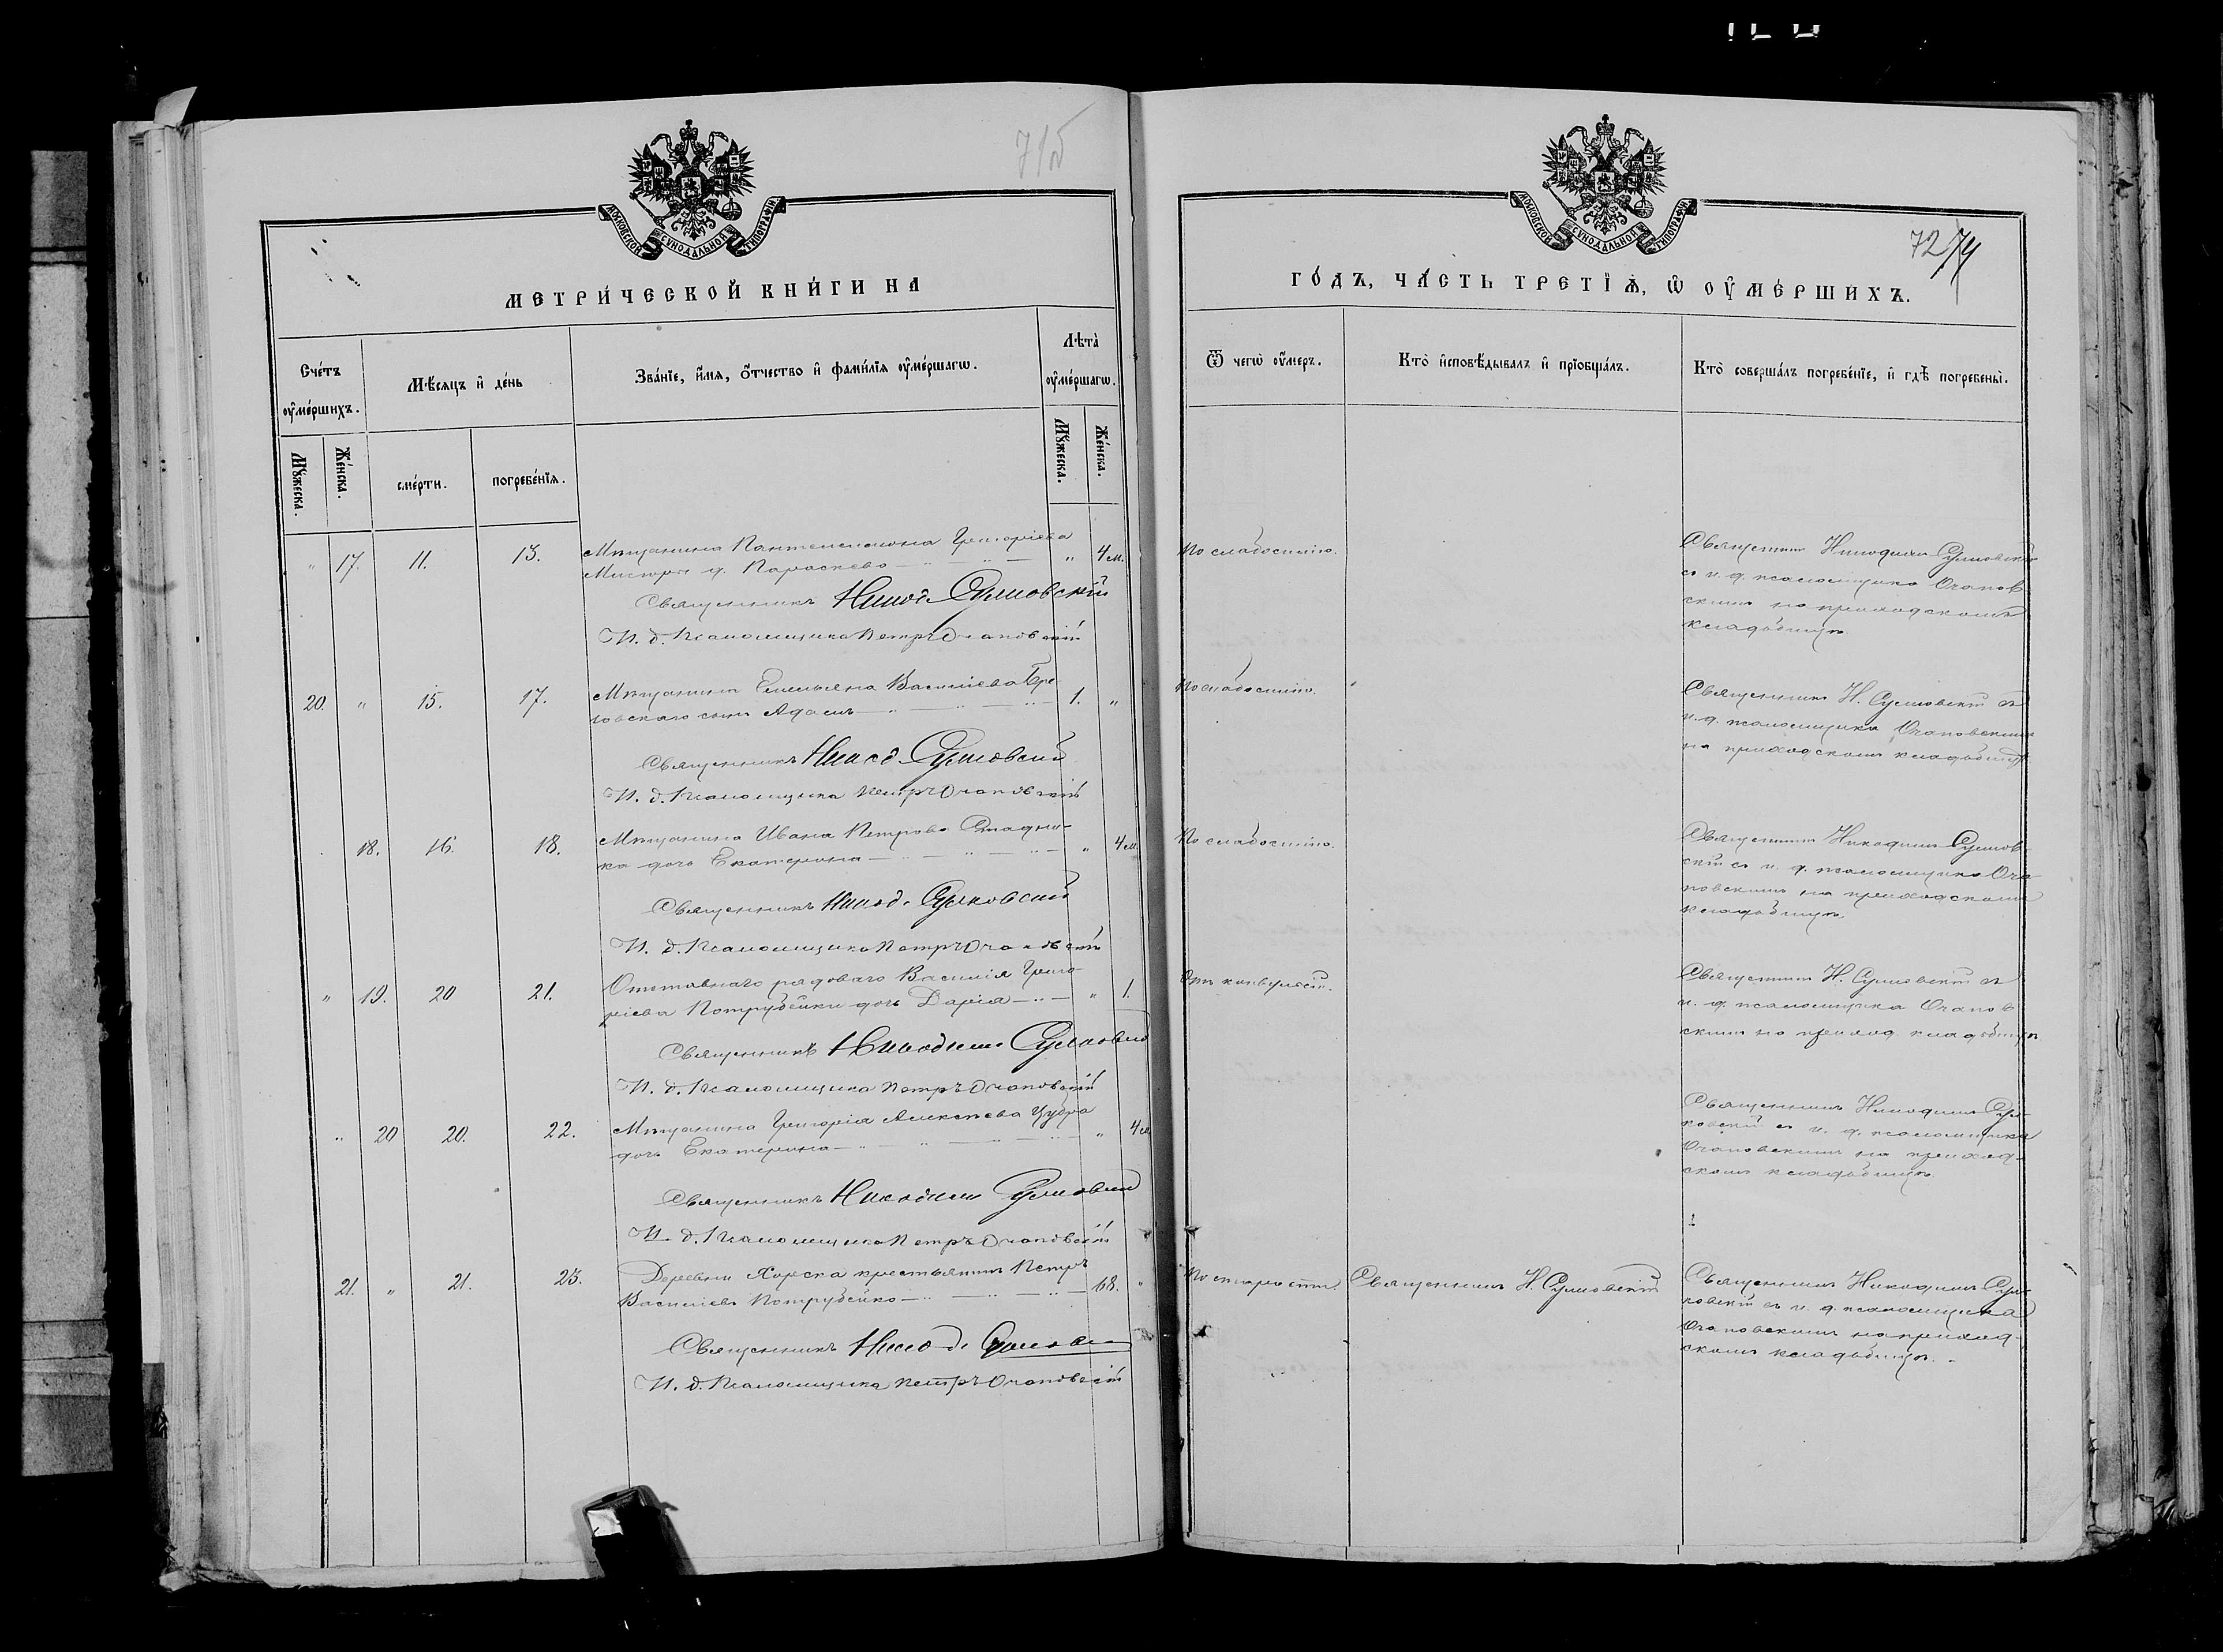 71б
МОСКОВСКОЙ СУНОДАЛЬНОЙ ТИПОГРАФІИ
МЕТРИ́ЧЕСКОЙ КНИ́ГИ НА
Сче́тъ оу҆ме́ршихъ.
Мѣ́сяцъ и҆ де́нь
Зва́нїе, и҆́мѧ, ѻ҆́тчество и҆ фами́лїѧ оу҆ме́ршагѡ.
Лѣта̀ оу҆ме́ршагѡ.
Мꙋ́жеска.
Же́нска.
сме́рти.
погребе́нїѧ.
Мꙋ́жеска.
Же́нска.
" 17. 11. 13. Мѣщанина Пантелеимона Григоріева " 4 м.
д. Параскева
Священникъ Никод. Сулковскій
И. д. Псаломщика Петръ Очаповскій
20. " 15. 17. Мѣщанина Емельяна Васильева 1. "
сынъ Адамъ
Священникъ Никод. Сулковскій
И. д. Псаломщика Петръ Очаповскій
18. 16. 18. Мѣщанина Ивана Петрова Стадни- " 4 м
ка дочь Екатерина
Священникъ Никод. Сулковскій
И. д. Псаломщика Петръ Очаповскій
" 19. 20 21. Отставнаго рядоваго Василія Григо-
ріева Потрубейки дочь Дарія " 1.
Священникъ Никодимъ Сулковскій
И. д. Псаломщика Петръ Очаповскій
" 20 20. 22. Мѣщанина Григорія Алексѣева Цубра
дочь Екатерина " 4 м
Священникъ Никодимъ Сулковскій
И. д. Псаломщика Петръ Очаповскій
21. " 21. 23. Деревни Хорска крестьянинъ Петръ
Васильевъ Потрубейко 68. "
Священникъ Никод. Сулковскій
И. д. Псаломщика Петръ Очаповскій
72 74
МОСКОВСКОЙ СУНОДАЛЬНОЙ ТИПОГРАФІИ
ГО́ДЪ, ЧА́СТЬ ТРЕТЇѦ, Ѡ҆ ОУ҆МЕ́РШИХЪ.
Ѿ чегѡ̀ оу҆́меръ.
Кто̀ и҆сповѣ́дывалъ и҆ прїобща́лъ.
Кто̀ соверша́лъ погребе́нїе, и҆ гдѣ̀ погребены̀.
По слабости. Священникъ Никодимъ Сулковскій
съ и. д. псаломщика Очапов
скимъ на приходскомъ
кладбищѣ.
По слабости. Священникъ Н. Сулковскій съ
и. д. псаломщика Очаповскимъ
на приходскомъ кладбищѣ.
По слабости. Священникъ Никодимъ Сулков-
скій съ и. д. псаломщика Оча-
повскимъ на приходскомъ
кладбищѣ.
Отъ конвульсіи. Священникъ Н. Сулковскій съ
и. д. псаломщика Очапов
скимъ на приход. кладбищѣ
Священникъ Никодимъ Сул-
ковскій съ и. д. псаломщика
Очаповскимъ на приход-
скомъ кладбищѣ.
По старости. Священникъ Н. Сулковскій Священникъ Никодимъ Сул-
ковскій съ и. д. псаломщика
Очаповскимъ на приход-
скомъ кладбищѣ.